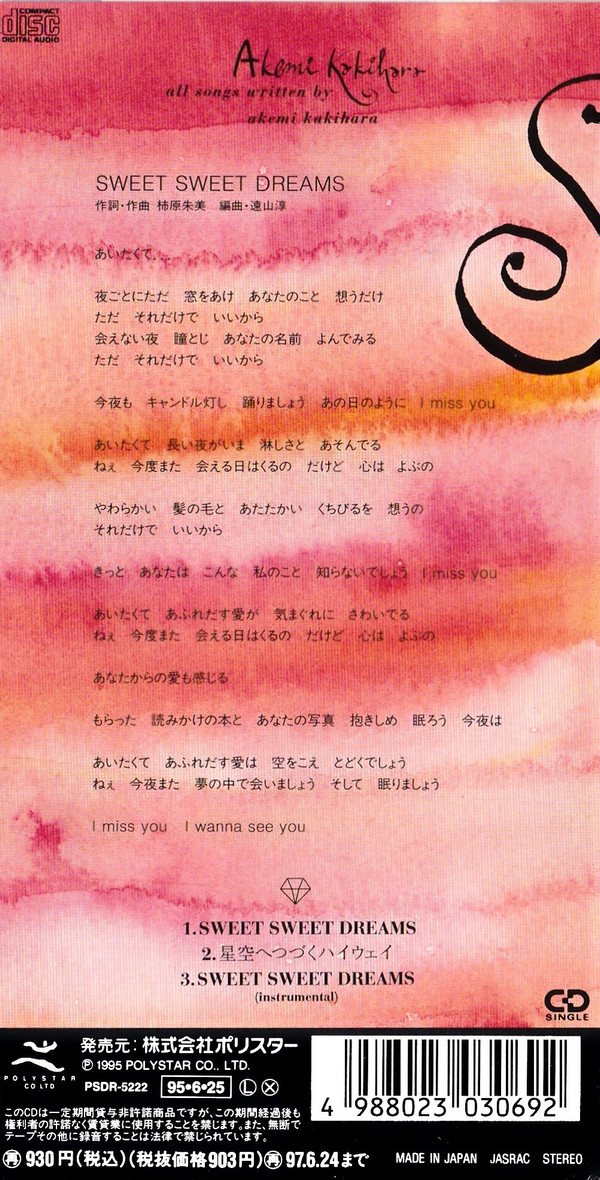 COMPACT
disc
DIGITAL AUDIO
Akemi Kakihara
all songs written by
akemi kakihara
SWEET SWEET DREAMS
作詞・作曲 柿原朱美　編曲・遠山淳
あいたくて…
夜ごとにただ　窓をあけ　あなたのこと　想うだけ
ただ　それだけで　いいから
会えない夜　瞳とじ　あなたの名前　よんでみる
ただ　それだけで　いいから
今夜も　キャンドル灯し　踊りましょう　あの日のように　I miss you
あいたくて　長い夜がいま　淋しさと　あそんでる
ねぇ　今度また　会える日はくるの　だけど　心は　よぶの
やわらかい　髪の毛と　あたたかい　くちびるを　想うの
それだけで　いいから
きっと　あなたは　こんな　私のこと　知らないでしょう　I miss you
あいたくて　あふれだす愛が　気まぐれに　さわいでる
ねぇ　今度また　会える日はくるの　だけど　心は　よぶの
あなたからの愛も感じる
もらった　読みかけの本と　あなたの写真　抱きしめ　眠ろう　今夜は
あいたくて　あふれだす愛は　空をこえ　とどくでしょう
ねぇ　今夜また　夢の中で会いましょう　そして　眠りましょう
I miss you　I wanna see you
1.SWEET SWEET DREAMS
2.星空へつづくハイウェイ
3.SWEET SWEET DREAMS
(instrumental)
CD
SINGLE
POLYSTAR
CO LTD
発売元：株式会社ポリスター
Ⓟ1995 POLYSTAR CO., LTD.
PSDR-5222　95・6・25　Ⓛ Ⓧ
4 988023 030692
このCDは一定期間貸与非許諾商品ですが、この期間経過後も
権利者の許諾なく賃貸業に使用することを禁じます。また、無断で
テープその他に録音することは法律で禁じられています。
㊢930円(税込)(税抜価格903円)㊢97.6.24まで
MADE IN JAPAN　JASRAC　STEREO